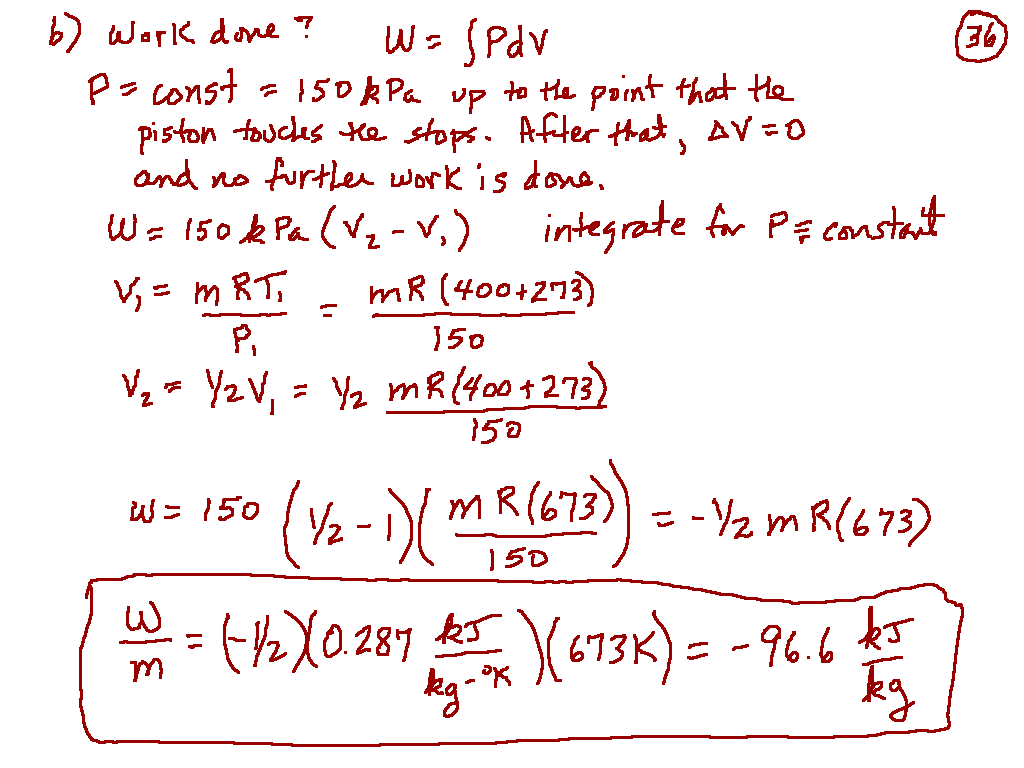 b) Work done? W = ∫PdV
36
P = const = 150 kPa up to the point that the
piston touches the stops. After that, ΔV = 0
and no further work is done.
W = 150 kPa (V₂ - V₁) integrate for P = constant
V₁ = mRT₁/P₁ = mR(400+273)/150
V₂ = 1/2 V₁ = 1/2 mR(400+273)/150
W = 150 (1/2 - 1)(mR(673)/150) = -1/2 mR(673)
W/m = (-1/2)(0.287 kJ/kg-°K)(673K) = -96.6 kJ/kg